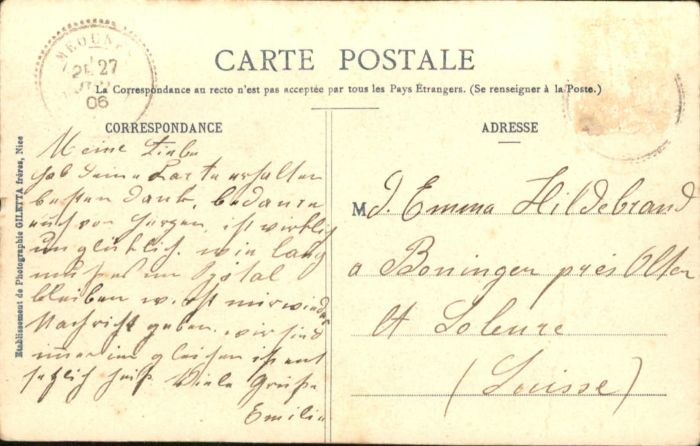 CARTE POSTALE
La Correspondance au recto n'est pas acceptée par tous les Pays Étrangers. (Se renseigner à la Poste.)
27
06
CORRESPONDANCE
Meine Liebe
hab Deine Karte erhalten
besten Dank, bedaure
auch von Herzen, ist wirklich
unglücklich wie lang
muss es im Spital
bleiben wirst mir wieder
Nachricht geben. wir sind
immer im gleichen ist ent
setzlich heiß Viele Grüße
Emilie
Etablissement de Photographie GILETTA frères, Nice
ADRESSE
M J. Emma Hildebrand
a Boninger près Olten
Ct Soleure
(Suisse)